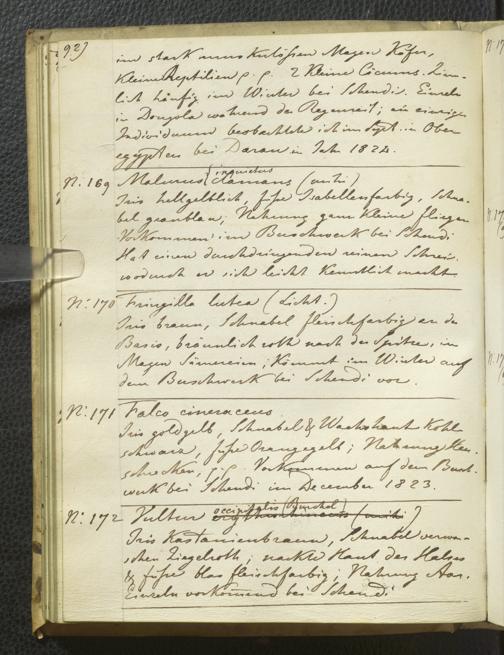 92)
im stark muskulössen Magen Käfer,
kleine Reptilien p. p. 2 kleine Cöcums. Ziem-
lich häufig im Winter bei Schendi. Einzeln
in Dongola während der Regenzeit; ein einziges
Individuum beobachtete ich im Sept. in Ober
egypten bei Darau in Jahr 1824.
N: 169 Malurus inquietus clamans (mihi)
Iris hellgelblich, füsse Isabellenfarbig, Schna-
bel graublau; Nahrung ganz kleine fliegen
Vorkommen im Buschwerk bei Schendi
Hat einen durchdringenden reinen Schrei
wodurch er sich leicht kenntlich macht
N: 170 Fringilla lutea (Licht.)
Iris braun, Schnabel fleischfarbig an der
Basis, bräunlich roth nach der Spitze, im
Magen Sämereien; kömmt im Winter auf
dem Buschwerk bei Schendi vor.
N: 171 Falco cineraceus
Iris goldgelb, Schnabel & Wachshaut Kohl
schwarz, füsse Orangegelb; Nahrung Heu-
schrecken, p. p. Vorkommen auf dem Busch-
werk bei Schendi im December 1823.
N: 172 Vultur occipitalis (Burchel)
Iris Kastanienbraun, Schnabel verwa-
schen Ziegelroth; nackte Haut des Halses
& füsse blas fleischfarbig; Nahrung Aas.
Einzeln vorkommend bei Schendi